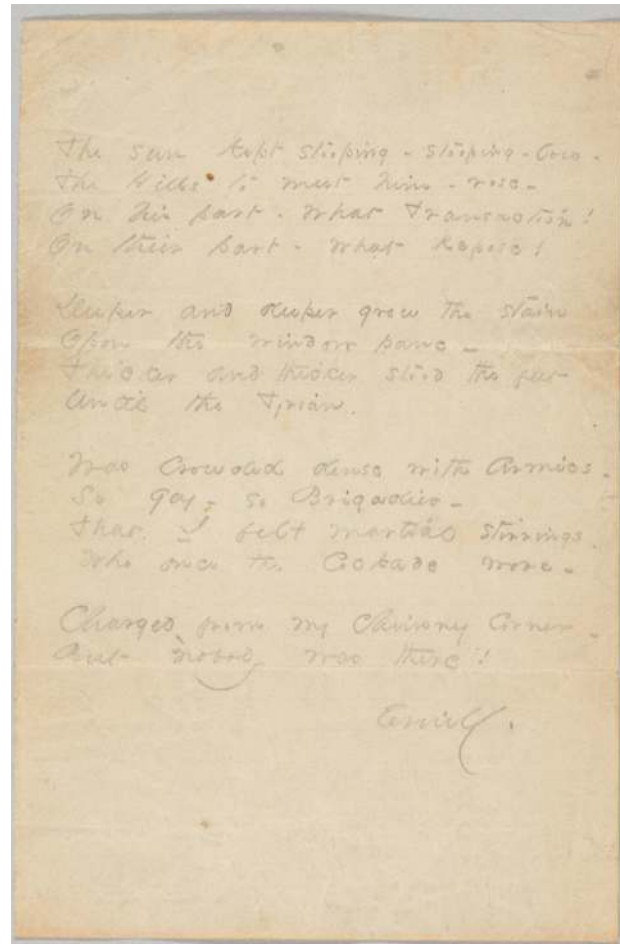 The sun kept stooping - stooping - low -
The Hills to meet him - rose -
On his part - what Transaction!
On their part - what Repose!
Deeper and deeper grew the stain
Upon the window pane -
Thicker and thicker stood the feet
Until the Tyrian.
Was Crowded dense with Armies -
So gay - so Brigadier -
That I felt martial stirrings
Who once the Cockade wore -
Charged from my Chimney Corner -
But nobody was there!
Emily.